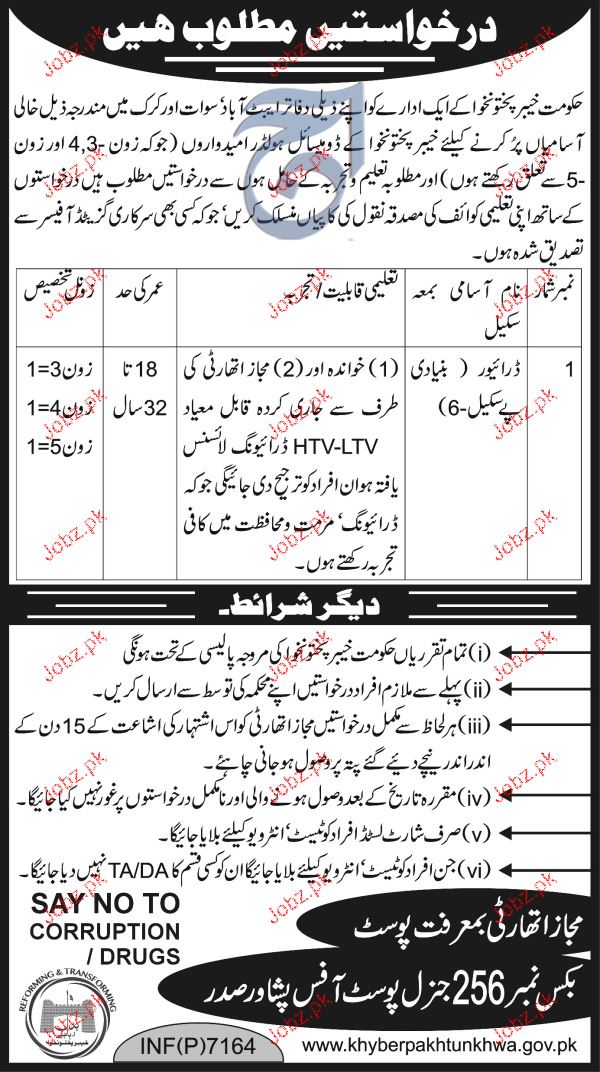 درخواستیں مطلوب ھیں
حکومت خیبر پختونخوا کے ایک ادارے کو اپنے ذیلی دفاتر ایبٹ آباد' سوات اور کرک میں مندرجہ ذیل خالی
آسامیاں پُر کرنے کیلئے خیبر پختونخوا کے ڈومیسائل ہولڈر امیدواروں (جو کہ زون -4,3 اور زون
-5 سے تعلق رکھتے ہوں) اور مطلوبہ تعلیم و تجربہ کے حامل ہوں سے درخواستیں مطلوب ہیں درخواستوں
کے ساتھ اپنی تعلیمی کوائف کی مصدقہ نقول کی کاپیاں منسلک کریں' جو کہ کسی بھی سرکاری گزیٹڈ آفیسر سے
تصدیق شدہ ہوں۔
نمبر شمار | نام آسامی بمعہ سکیل | تعلیمی قابلیت/تجربہ | عمر کی حد | زونل تخصیص
1 | ڈرائیور (بنیادی پے سکیل-6) | (1) خواندہ اور (2) مجاز اتھارٹی کی طرف سے جاری کردہ قابل معیاد HTV-LTV ڈرائیونگ لائسنس یافتہ ہو ان افراد کو ترجیح دی جائیگی جو کہ ڈرائیونگ' مرمت و محافظت میں کافی تجربہ رکھتے ہوں۔ | 18 تا 32 سال | زون 3=1 زون 4=1 زون 5=1
دیگر شرائط۔
(i) تمام تقرریاں حکومت خیبر پختونخوا کی مروجہ پالیسی کے تحت ہونگی
(ii) پہلے سے ملازم افراد درخواستیں اپنے محکمہ کی توسط سے ارسال کریں۔
(iii) ہر لحاظ سے مکمل درخواستیں مجاز اتھارٹی کو اس اشتہار کی اشاعت کے 15 دن کے
اندر اندر نیچے دیئے گئے پتہ پر وصول ہو جانی چاہئے۔
(iv) مقررہ تاریخ کے بعد وصول ہونے والی اور نامکمل درخواستوں پر غور نہیں کیا جائیگا۔
(v) صرف شارٹ لسٹڈ افراد کو ٹیسٹ' انٹرویو کیلئے بلایا جائیگا۔
(vi) جن افراد کو ٹیسٹ' انٹرویو کیلئے بلایا جائیگا ان کو کسی قسم کا TA/DA نہیں دیا جائیگا۔
SAY NO TO
CORRUPTION
/ DRUGS
مجاز اتھارٹی بمعرفت پوسٹ
بکس نمبر 256 جنرل پوسٹ آفس پشاور صدر
REFORMING & TRANSFORMING
خیبر پختونخوا
INF(P)7164
www.khyberpakhtunkhwa.gov.pk
Jobz.pk